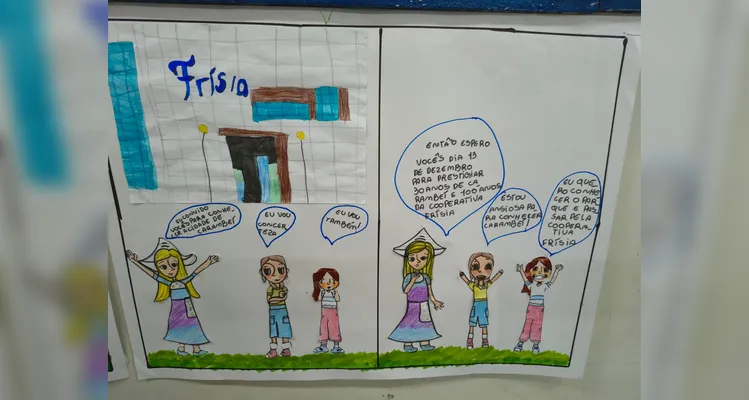 Frísia
EU CONVIDO
VOCÊS PARA CONHE
CER A CIDADE DE
CARAMBEÍ
EU VOU
CONCER
TEZA
EU VOU
TAMBÉM!
ENTÃO ESPERO
VOCÊS DIA 13
DE DEZEMBRO
PARA PRESTIGIAR
30 ANOS DE CA
RAMBEÍ E 100 ANOS
DA COOPERATIVA
FRÍSIA
ESTOU
ANSIOSA PA
RA CONHECER
CARAMBEÍ!
EU QUE
RO CONHE
CER O PAR
QUE E PAS
SAR PELA
COOPERA
TIVA
FRÍSIA